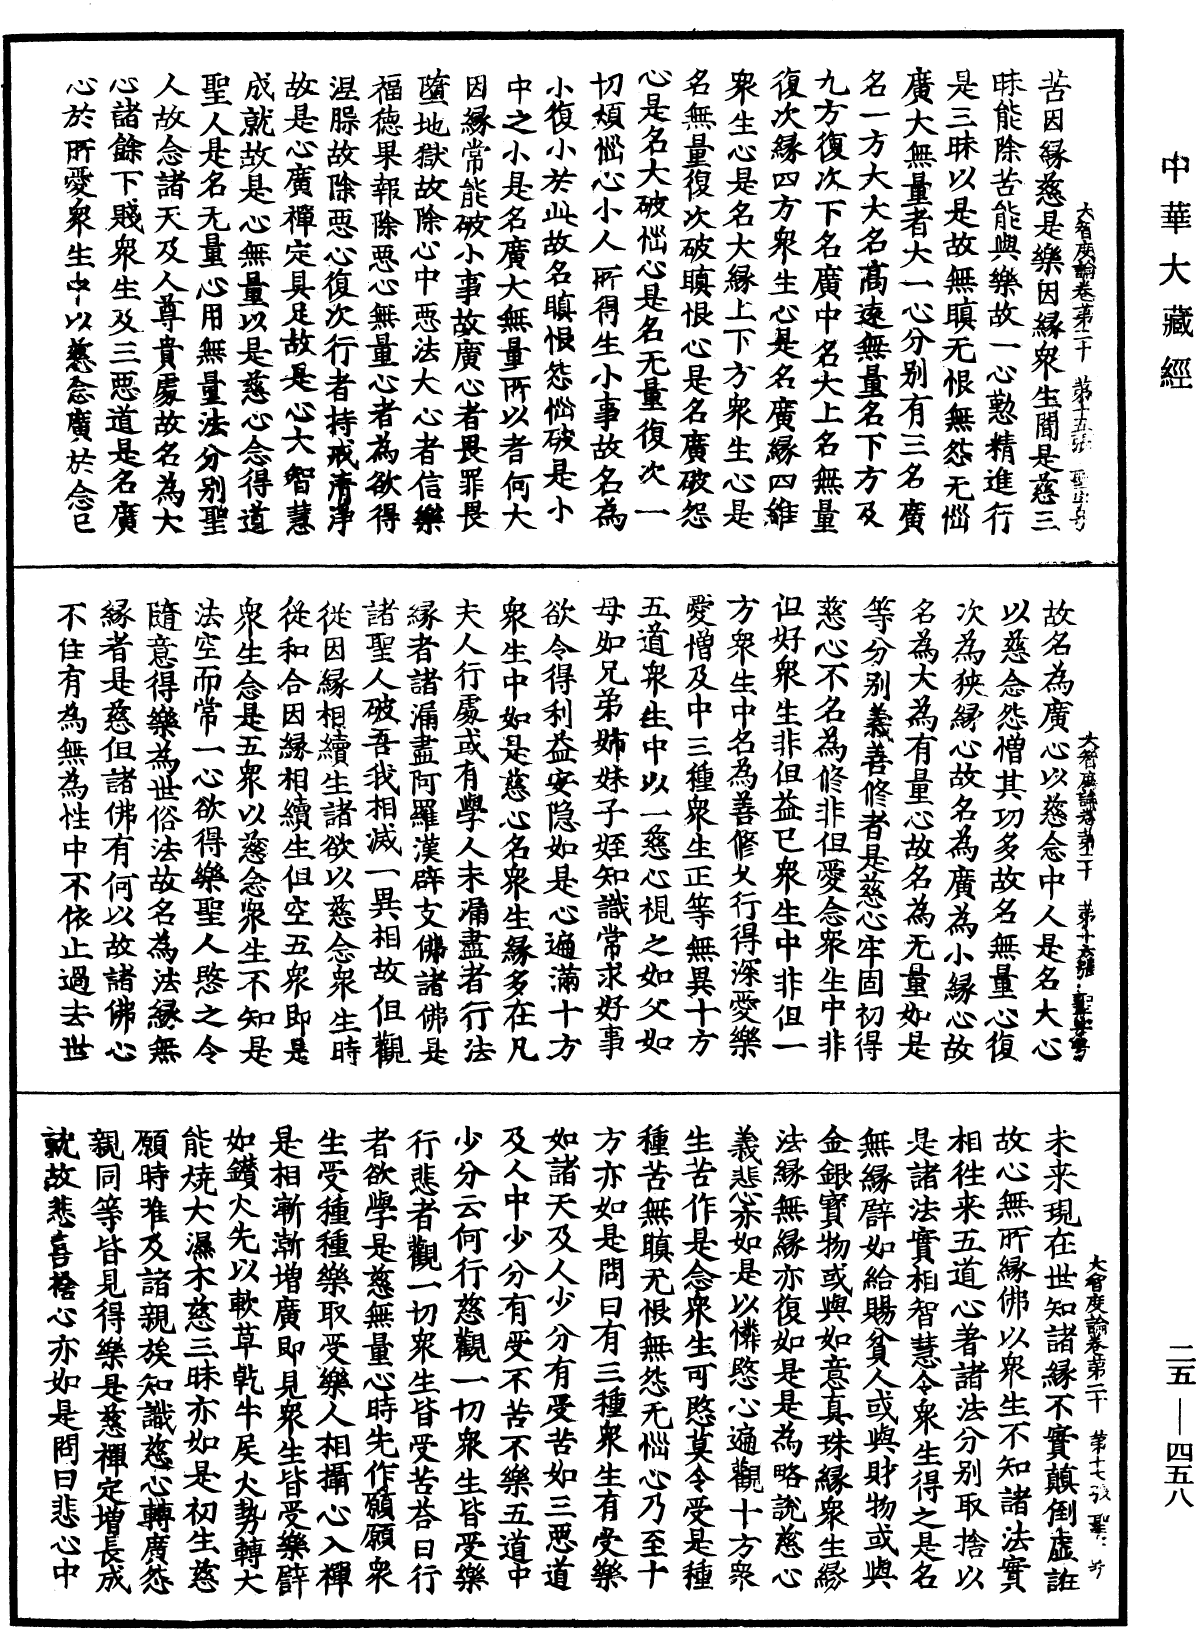 中華大藏經
大智度論卷第二十　第十五張　聖
苦因緣慈是樂因緣衆生聞是慈三
昧能除苦能與樂故一心懃精進行
是三昧以是故無瞋无恨無怨无惱
廣大無量者大一心分別有三名廣
名一方大大名高遠無量名下方及
九方復次下名廣中名大上名無量
復次緣四方衆生心是名廣緣四維
衆生心是名大緣上下方衆生心是
名無量復次破瞋恨心是名廣破怨
心是名大破惱心是名无量復次一
切煩惱心小人所得生小事故名為
小復小於此故名瞋恨怨惱破是小
中之小是名廣大無量所以者何大
因緣常能破小事故廣心者畏罪畏
墮地獄故除心中惡法大心者信樂
福德果報除惡心無量心者為欲得
涅槃故除惡心復次行者持戒清淨
故是心廣禪定具足故是心大智慧
成就故是心無量以是慈心念得道
聖人是名无量心用無量法分別聖
人故念諸天及人尊貴處故名為大
心諸餘下賤衆生及三惡道是名廣
心於所愛衆生中以慈念廣於念己
大智度論卷第二十　第十六張
故名為廣心以慈念中人是名大心
以慈念怨憎其功多故名無量心復
次為狹緣心故名為廣為小緣心故
名為大為有量心故名為无量如是
等分別義善修者是慈心牢固初得
慈心不名為修非但愛念衆生中非
但好衆生非但益已衆生中非但一
方衆生中名為善修久行得深愛樂
愛憎及中三種衆生正等無異十方
五道衆生中以一慈心視之如父如
母如兄弟姊妹子姪知識常求好事
欲令得利益安隱如是心遍滿十方
衆生中如是慈心名衆生緣多在凡
夫人行處或有學人未漏盡者行法
緣者諸漏盡阿羅漢辟支佛諸佛是
諸聖人破吾我相滅一異相故但觀
從因緣相續生諸欲以慈念衆生時
從和合因緣相續生但空五衆即是
衆生念是五衆以慈念衆生不知是
法空而常一心欲得樂聖人愍之令
隨意得樂為世俗法故名為法緣無
緣者是慈但諸佛有何以故諸佛心
不住有為無為性中不依止過去世
大智度論卷第二十　第十七張　聖
未来現在世知諸緣不實顛倒虛誑
故心無所緣佛以衆生不知諸法實
相往来五道心著諸法分別取捨以
是諸法實相智慧令衆生得之是名
無緣譬如給賜貧人或與財物或與
金銀寶物或與如意真珠緣衆生緣
法緣無緣亦復如是是為略說慈心
義悲心亦如是以憐愍心遍觀十方衆
生苦作是念衆生可愍莫令受是種
種苦無瞋无恨無怨无惱心乃至十
方亦如是問曰有三種衆生有受樂
如諸天及人少分有受苦如三惡道
及人中少分有受不苦不樂五道中
少分云何行慈觀一切衆生皆受樂
行悲者觀一切衆生皆受苦荅曰行
者欲學是慈無量心時先作願願衆
生受種種樂取受樂人相攝心入禪
是相漸漸增廣即見衆生皆受樂譬
如鑽火先以軟草乾牛屎火勢轉大
能燒大濕木慈三昧亦如是初生慈
願時唯及諸親族知識慈心轉廣怨
親同等皆見得樂是慈禪定增長成
就故悲喜捨心亦如是問曰悲心中
二五—四五八